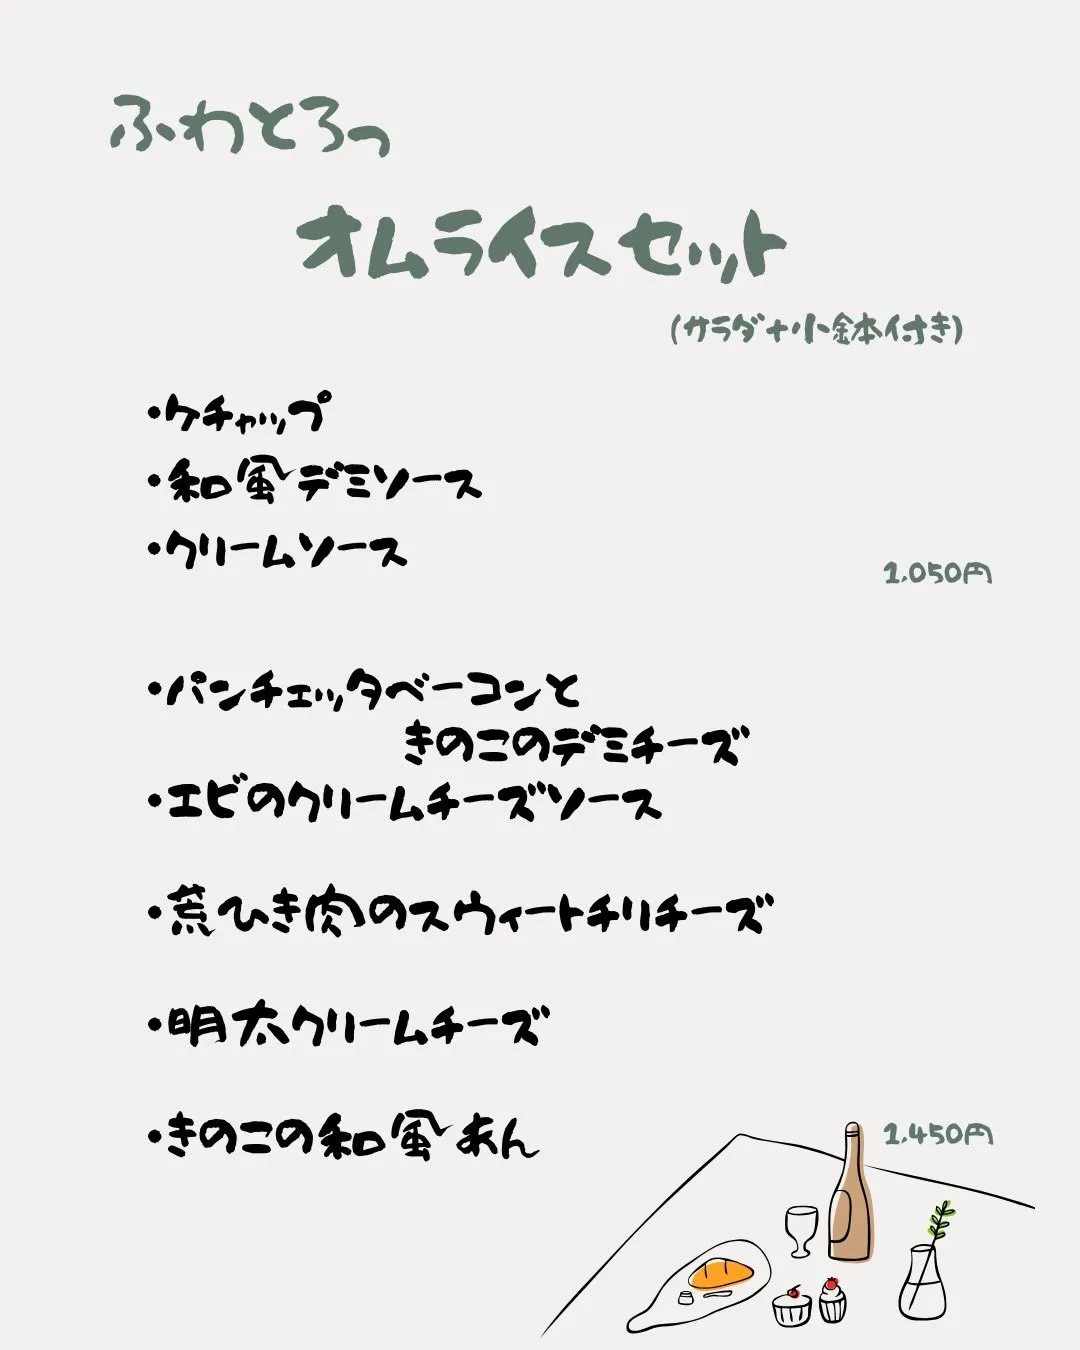 ふわとろっ
オムライスセット
(サラダ+小鉢付き)
・ケチャップ
・和風デミソース
・クリームソース
1,050円
・パンチェッタベーコンと
きのこのデミチーズ
・エビのクリームチーズソース
・荒ひき肉のスウィートチリチーズ
・明太クリームチーズ
・きのこの和風あん
1,450円